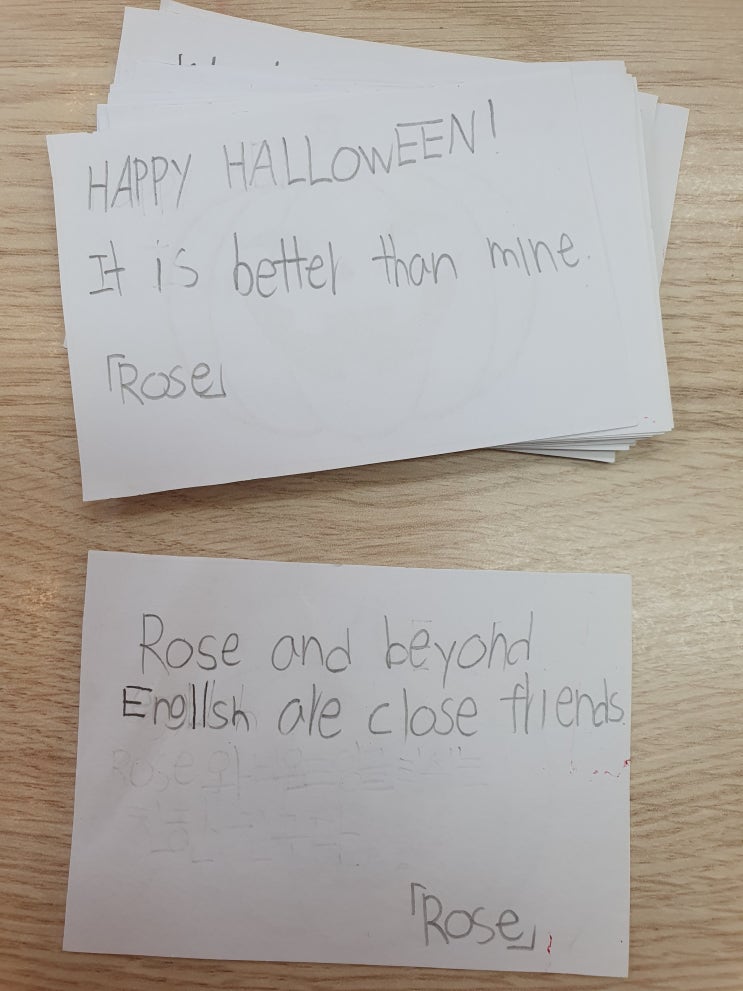 HAPPY HALLOWEEN!
It is better than mine.
「Rose」
Rose and beyond
English are close friends.
Rose와
「Rose」